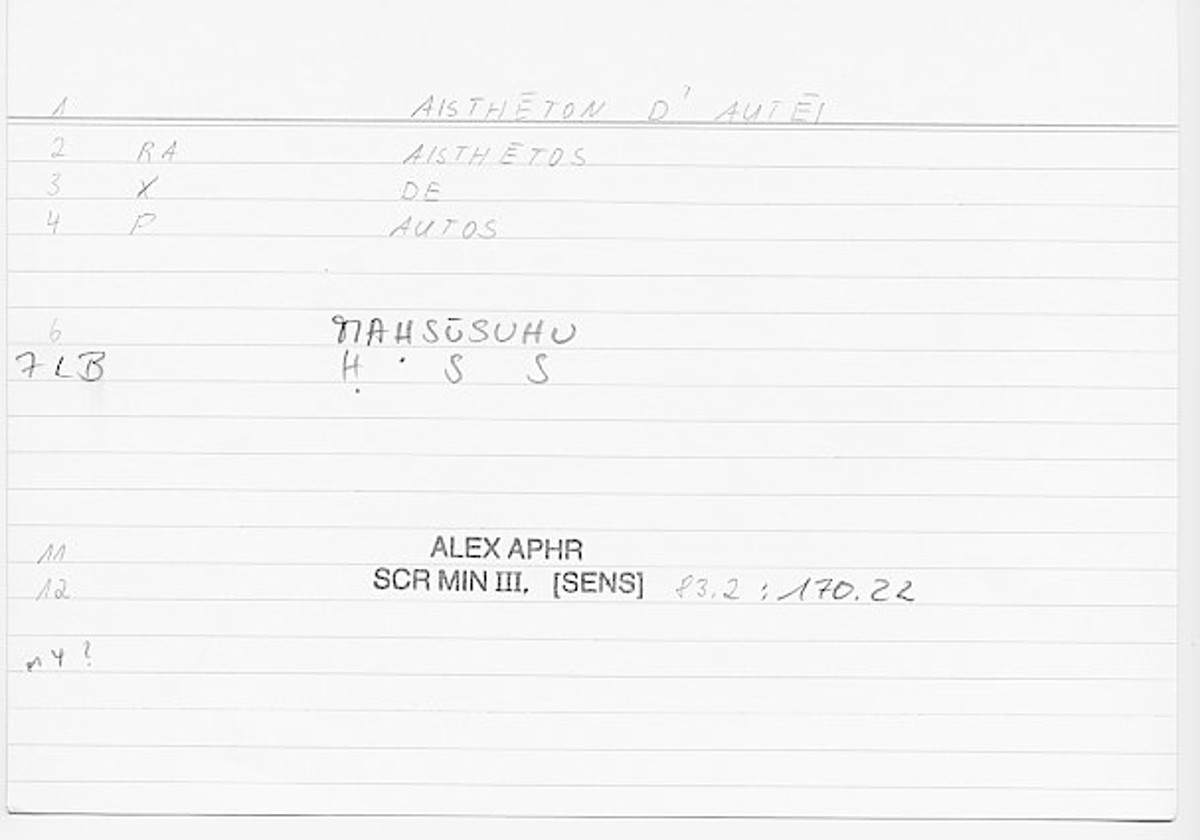 1 AISTHĒTON D' AUTĒI
2 RA AISTHĒTOS
3 X DE
4 P AUTOS
6 MAHSŪSUHU
7 LB Ḥ · S S
11 ALEX APHR
12 SCR MIN III. [SENS] 83.2 : 170.22
n 4 ?